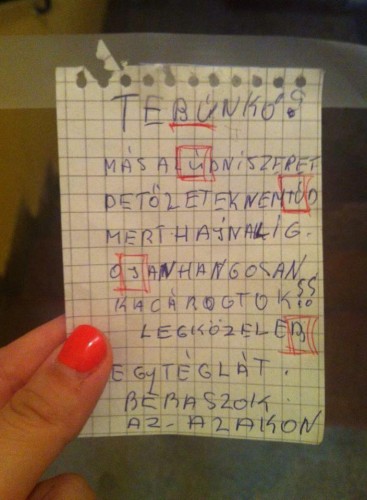 TEBÚNKÓ?
MÁSALÚDNISZERET
DETŐLETEKNEMTÚD
MERTHAJNALIG.
OJANHANGOSAN
KACÁROGTOK
LEGKÖZELEB
EGYTÉGLÁT.
BEBASZOK.
AZ-AZAKON